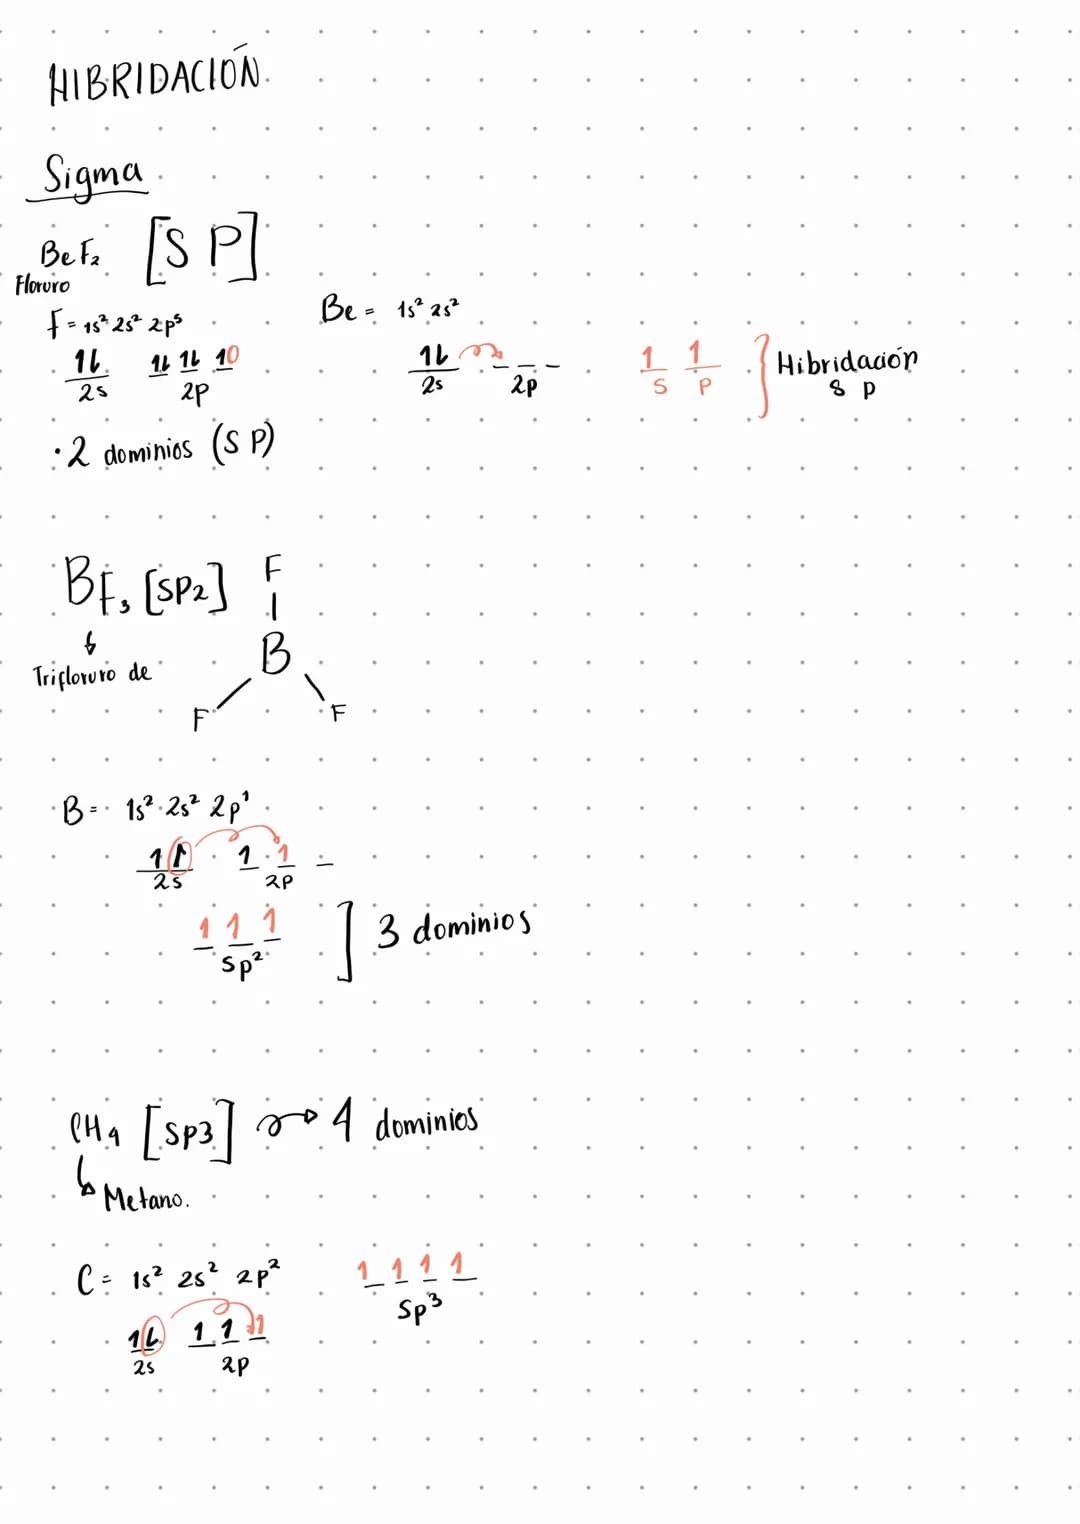 HIBRIDACIÓN.
Sigma
BeF₂ [S P]
Floruro
F = 1s² 2s² 2p⁵
1L 1L 1L 10
2s 2p
Be = 1s² 2s²
1L _ _ _
2s 2p
1 1
S P
Hibridación
s p
·2 dominios (S P)
BF₃ [SP₂]
Trifloruro de
F
B
F F
B = 1s² 2s² 2p¹
1 1 1 1 _
2s 2p
1 1 1
Sp²
3 dominios
CH₄ [SP3] 4 dominios
Metano.
C = 1s² 2s² 2p²
1L 1 1 1
2s 2p
1 1 1 1
Sp³